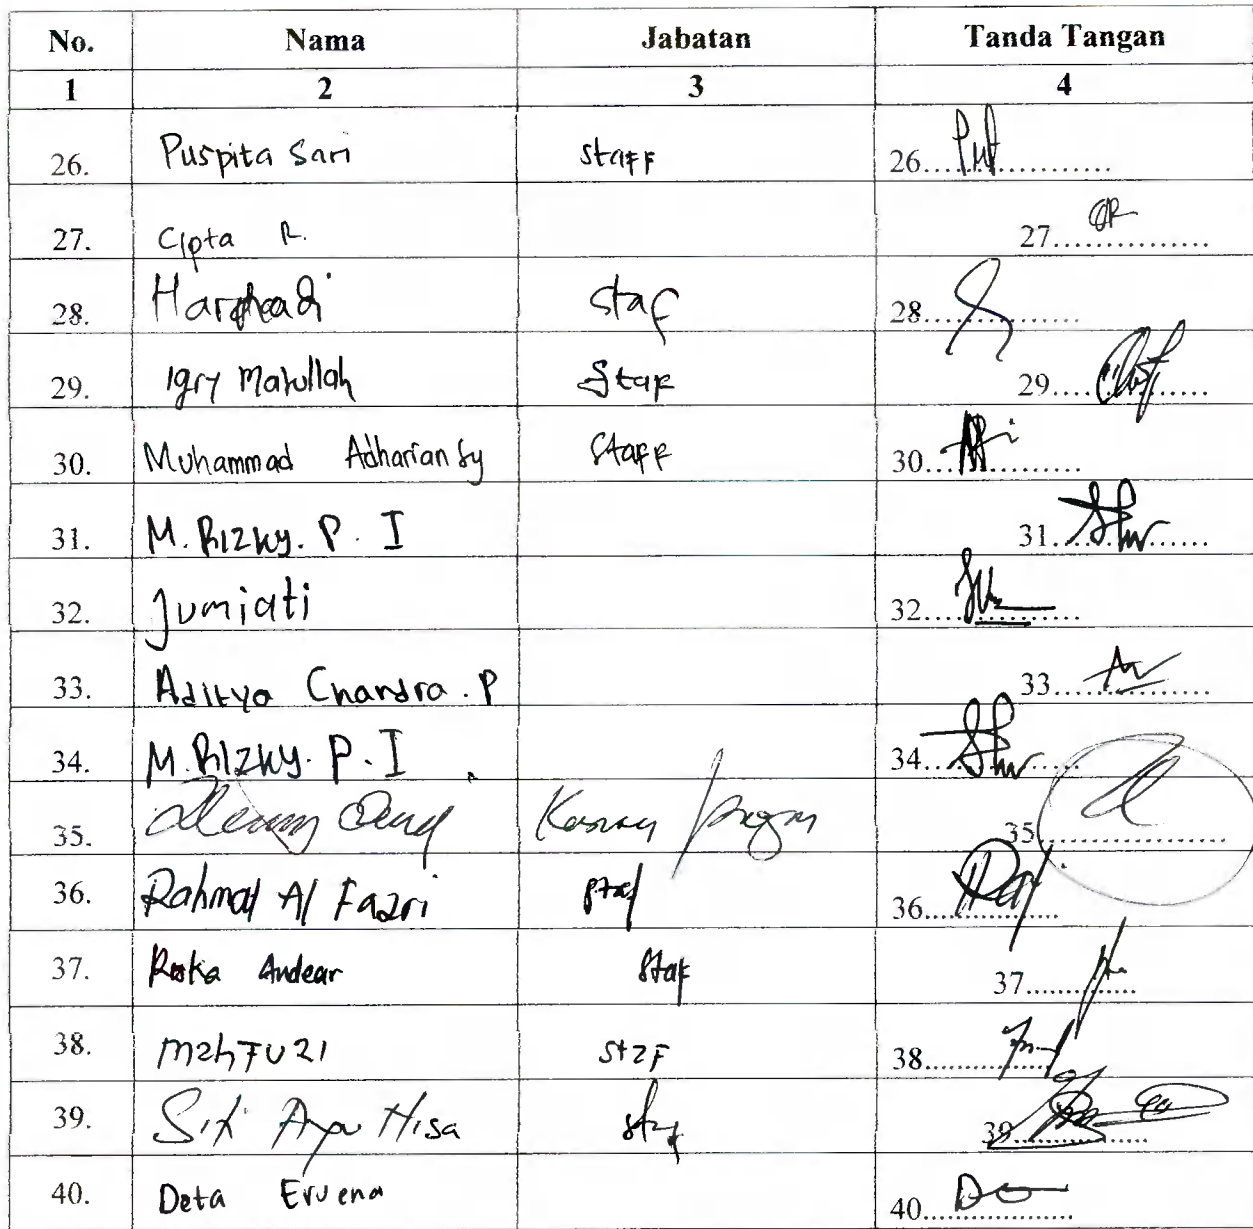 No. Nama Jabatan Tanda Tangan
1 2 3 4
26. Puspita Sari Staff 26....................
27. Cipta R. 27................
28. staf 28................
29. Staf 29................
30. Muhammad Adhariansy Staff 30................
31. M. Rizky. P. I 31................
32. Jumiati 32................
33. Aditya Chandra. P 33................
34. M. Rizky. P. I 34................
35. 35................
36. Rahmat Al Fazri staf 36................
37. Andear Staf 37................
38. staf 38................
39. Hisa staf 39................
40. Deta Ervena 40................